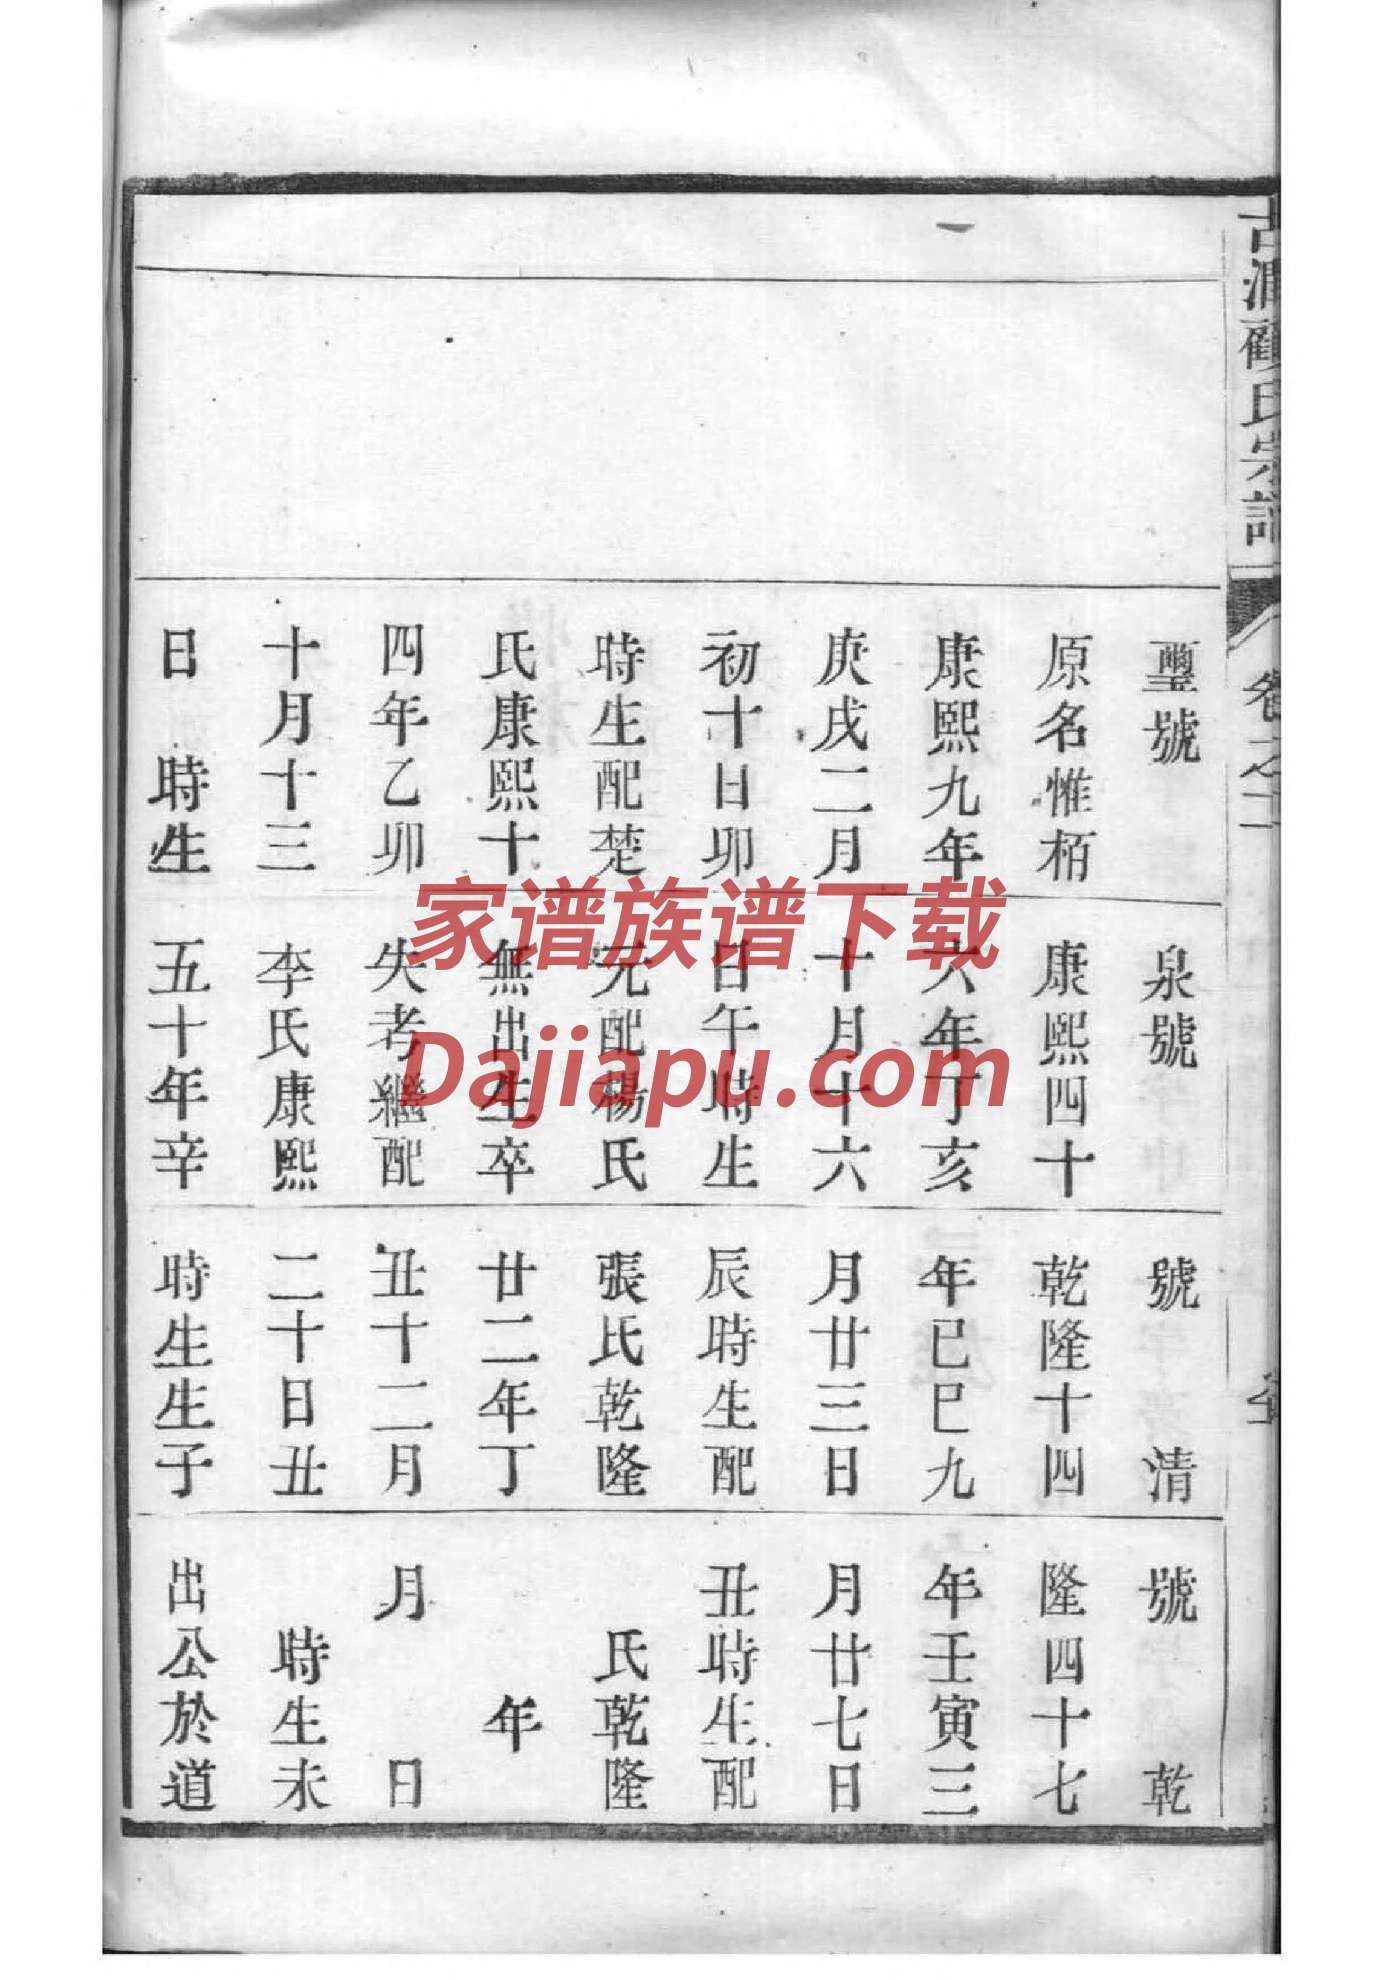 古 顧氏宗譜
卷之二
璽號
原名惟栢
康熙九年
庚戌二月
初十日卯
時生配楚
氏康熙十
四年乙卯
十月十三
日 時生
泉號
康熙四十
六年丁亥
十月十六
日午時生
元配楊氏
無出生卒
失考繼配
李氏康熙
五十年辛
號 清
乾隆十四
年已巳九
月廿三日
辰時生配
張氏乾隆
廿二年丁
丑十二月
二十日丑
時生生子
號 乾
隆四十七
年壬寅三
月廿七日
丑時生配
氏乾隆
年
月 日
時生未
出公於道
家谱族谱下载
Dajiapu.com